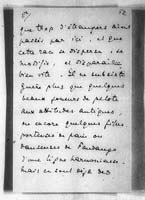 que trop d'étrangers aient
passés par ici, et que
cette race se disperse, se
modifie, et disparaisse
bien vite. Il ne subsiste
guère plus que quelques
beaux joueurs de pelote
aux attitudes antiques,
ou encore quelques filles
porteuses de pain ou
danseuses de Fandango
d'une ligne harmonieuse.
mais ce sont déjà des